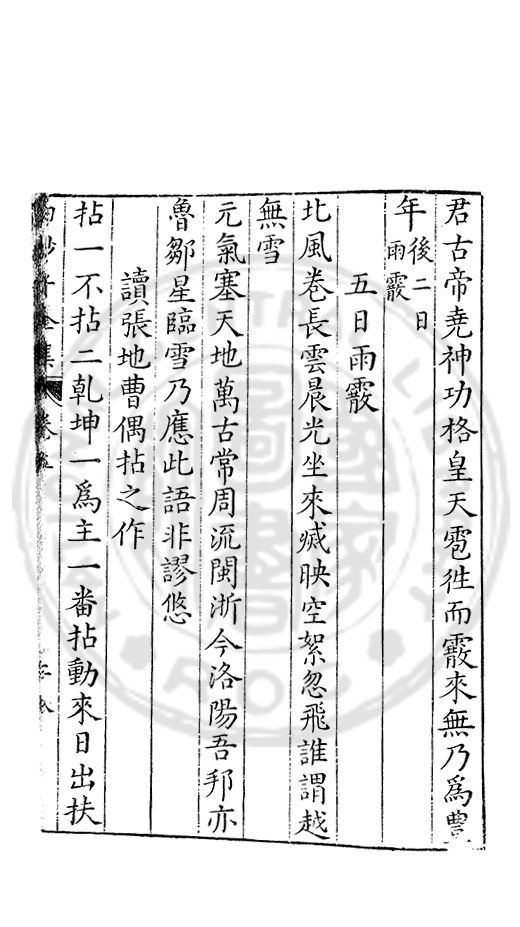 君古帝堯神功格皇天雹徃而霰來無乃爲豐
年後二日
雨霰
五日雨霰
北風卷長雲晨光坐來滅映空絮忽飛誰謂越
無雪
元氣塞天地萬古常周流閩浙今洛陽吾邦亦
魯鄒星臨雪乃應此語非謬悠
讀張地曹偶拈之作
拈一不拈二乹坤一爲主一番拈動來日出扶
白沙子全集 卷五